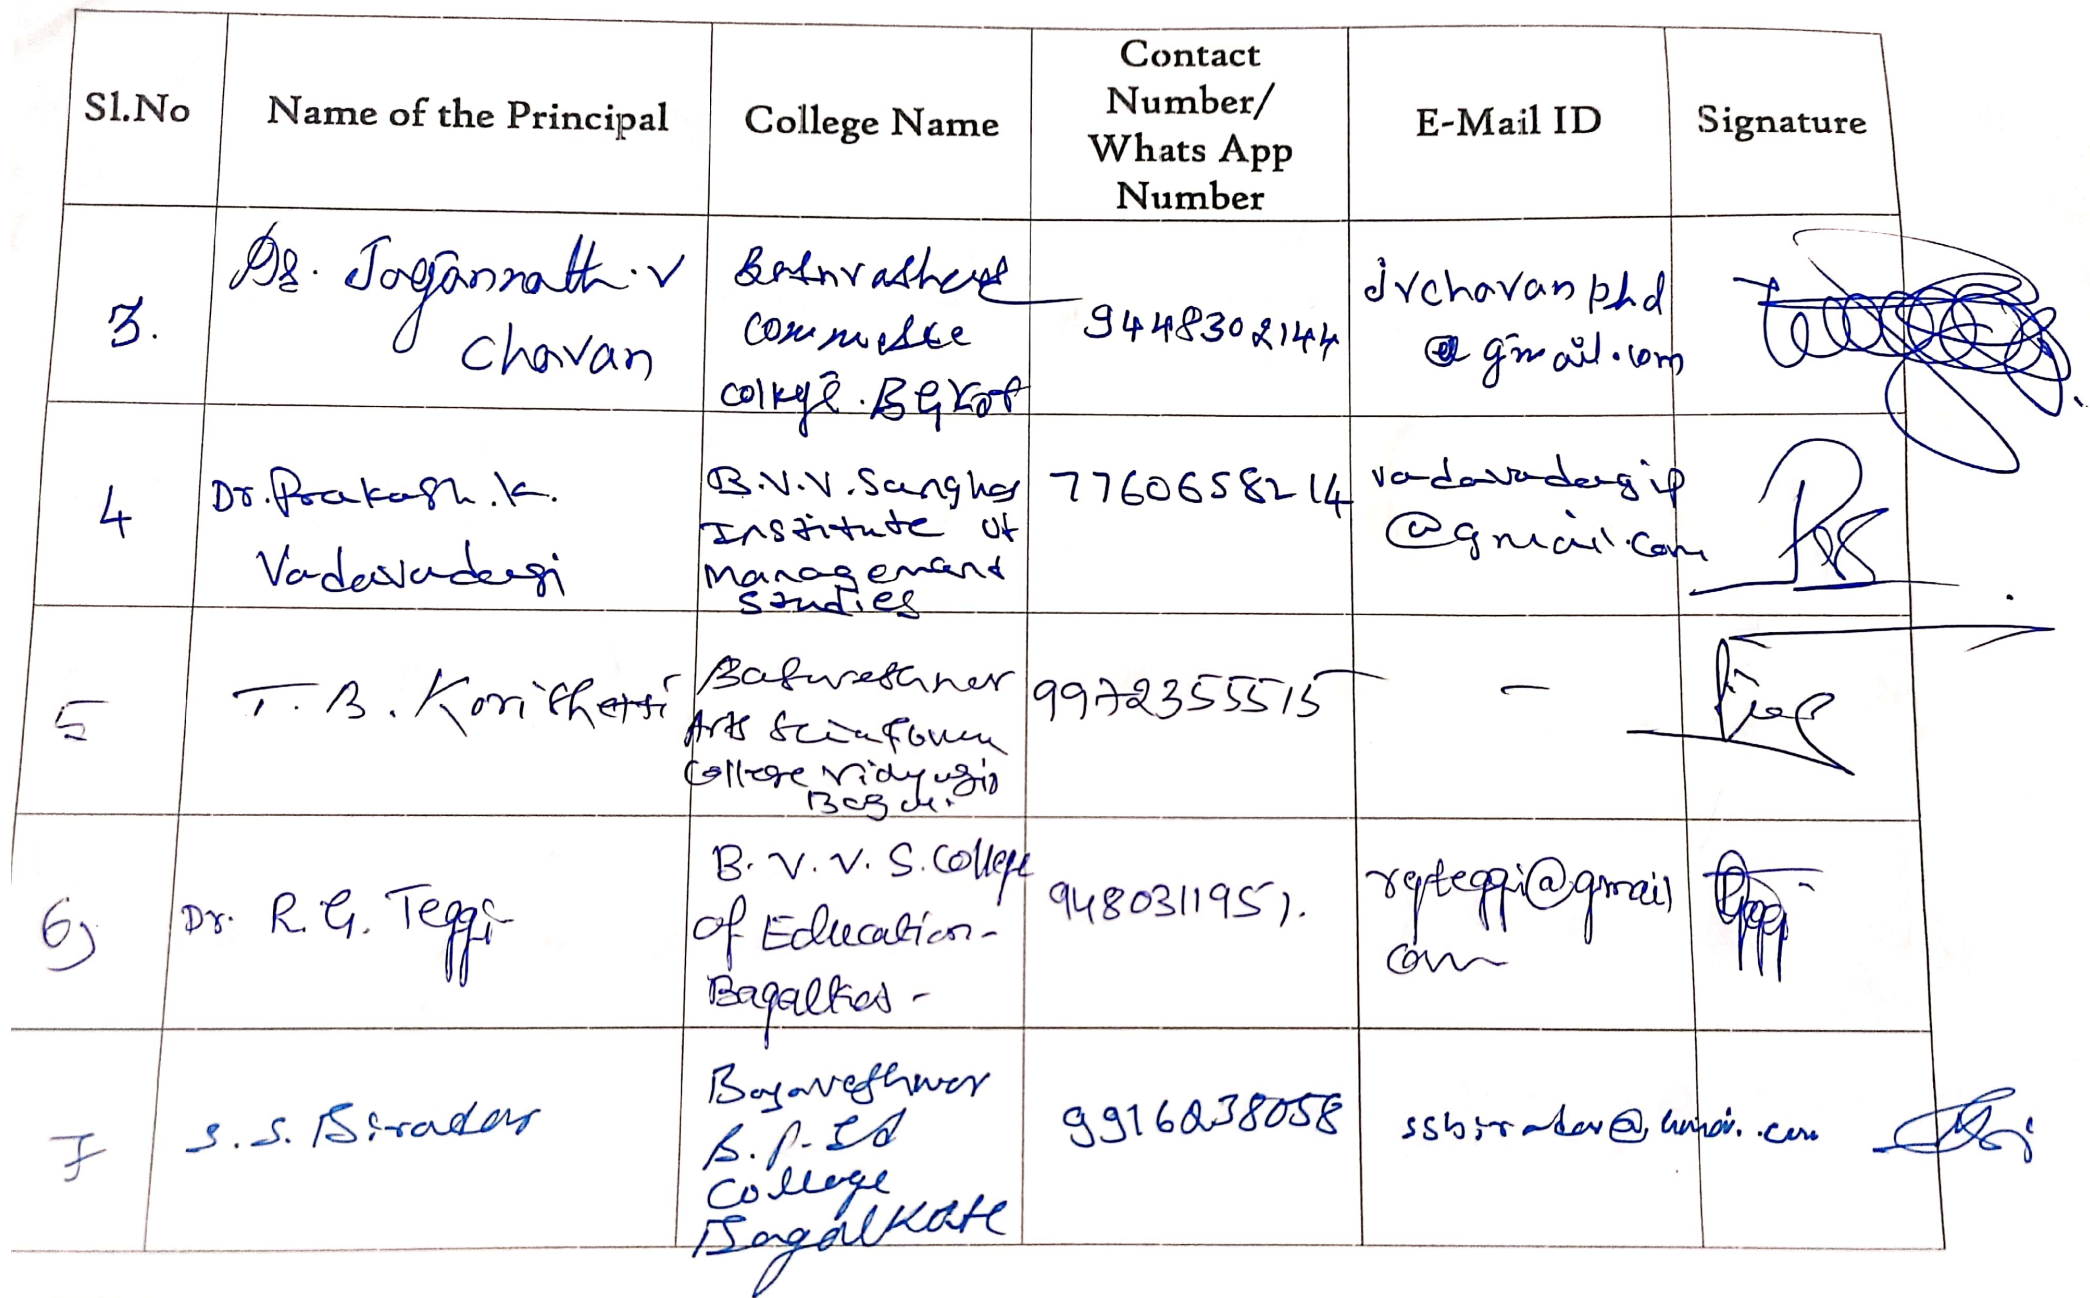 Sl.No
Name of the Principal
College Name
Contact
Number/
Whats App
Number
E-Mail ID
Signature
3.
Dr. Jagannath.v
Chavan
Commerce
College. BGKot
9448302144
jvchavanphd
@gmail.com
4
Dr. Prakash.K.
Vadavadagi
B.V.V. Sangha
Institute of
Management
Studies
7760658214
vadavadagip
@gmail.com
5
T. B.
Arts
College
9972355515
-
6)
Dr. R. G. Teggi
B. V. V. S. College
of Education-
Bagalkot -
9480311951.
rgteggi@gmail
com
7
S. S. Biradar
Basaveshwar
B.P.Ed
College
Bagalkote
9916238058
ssbiradar@